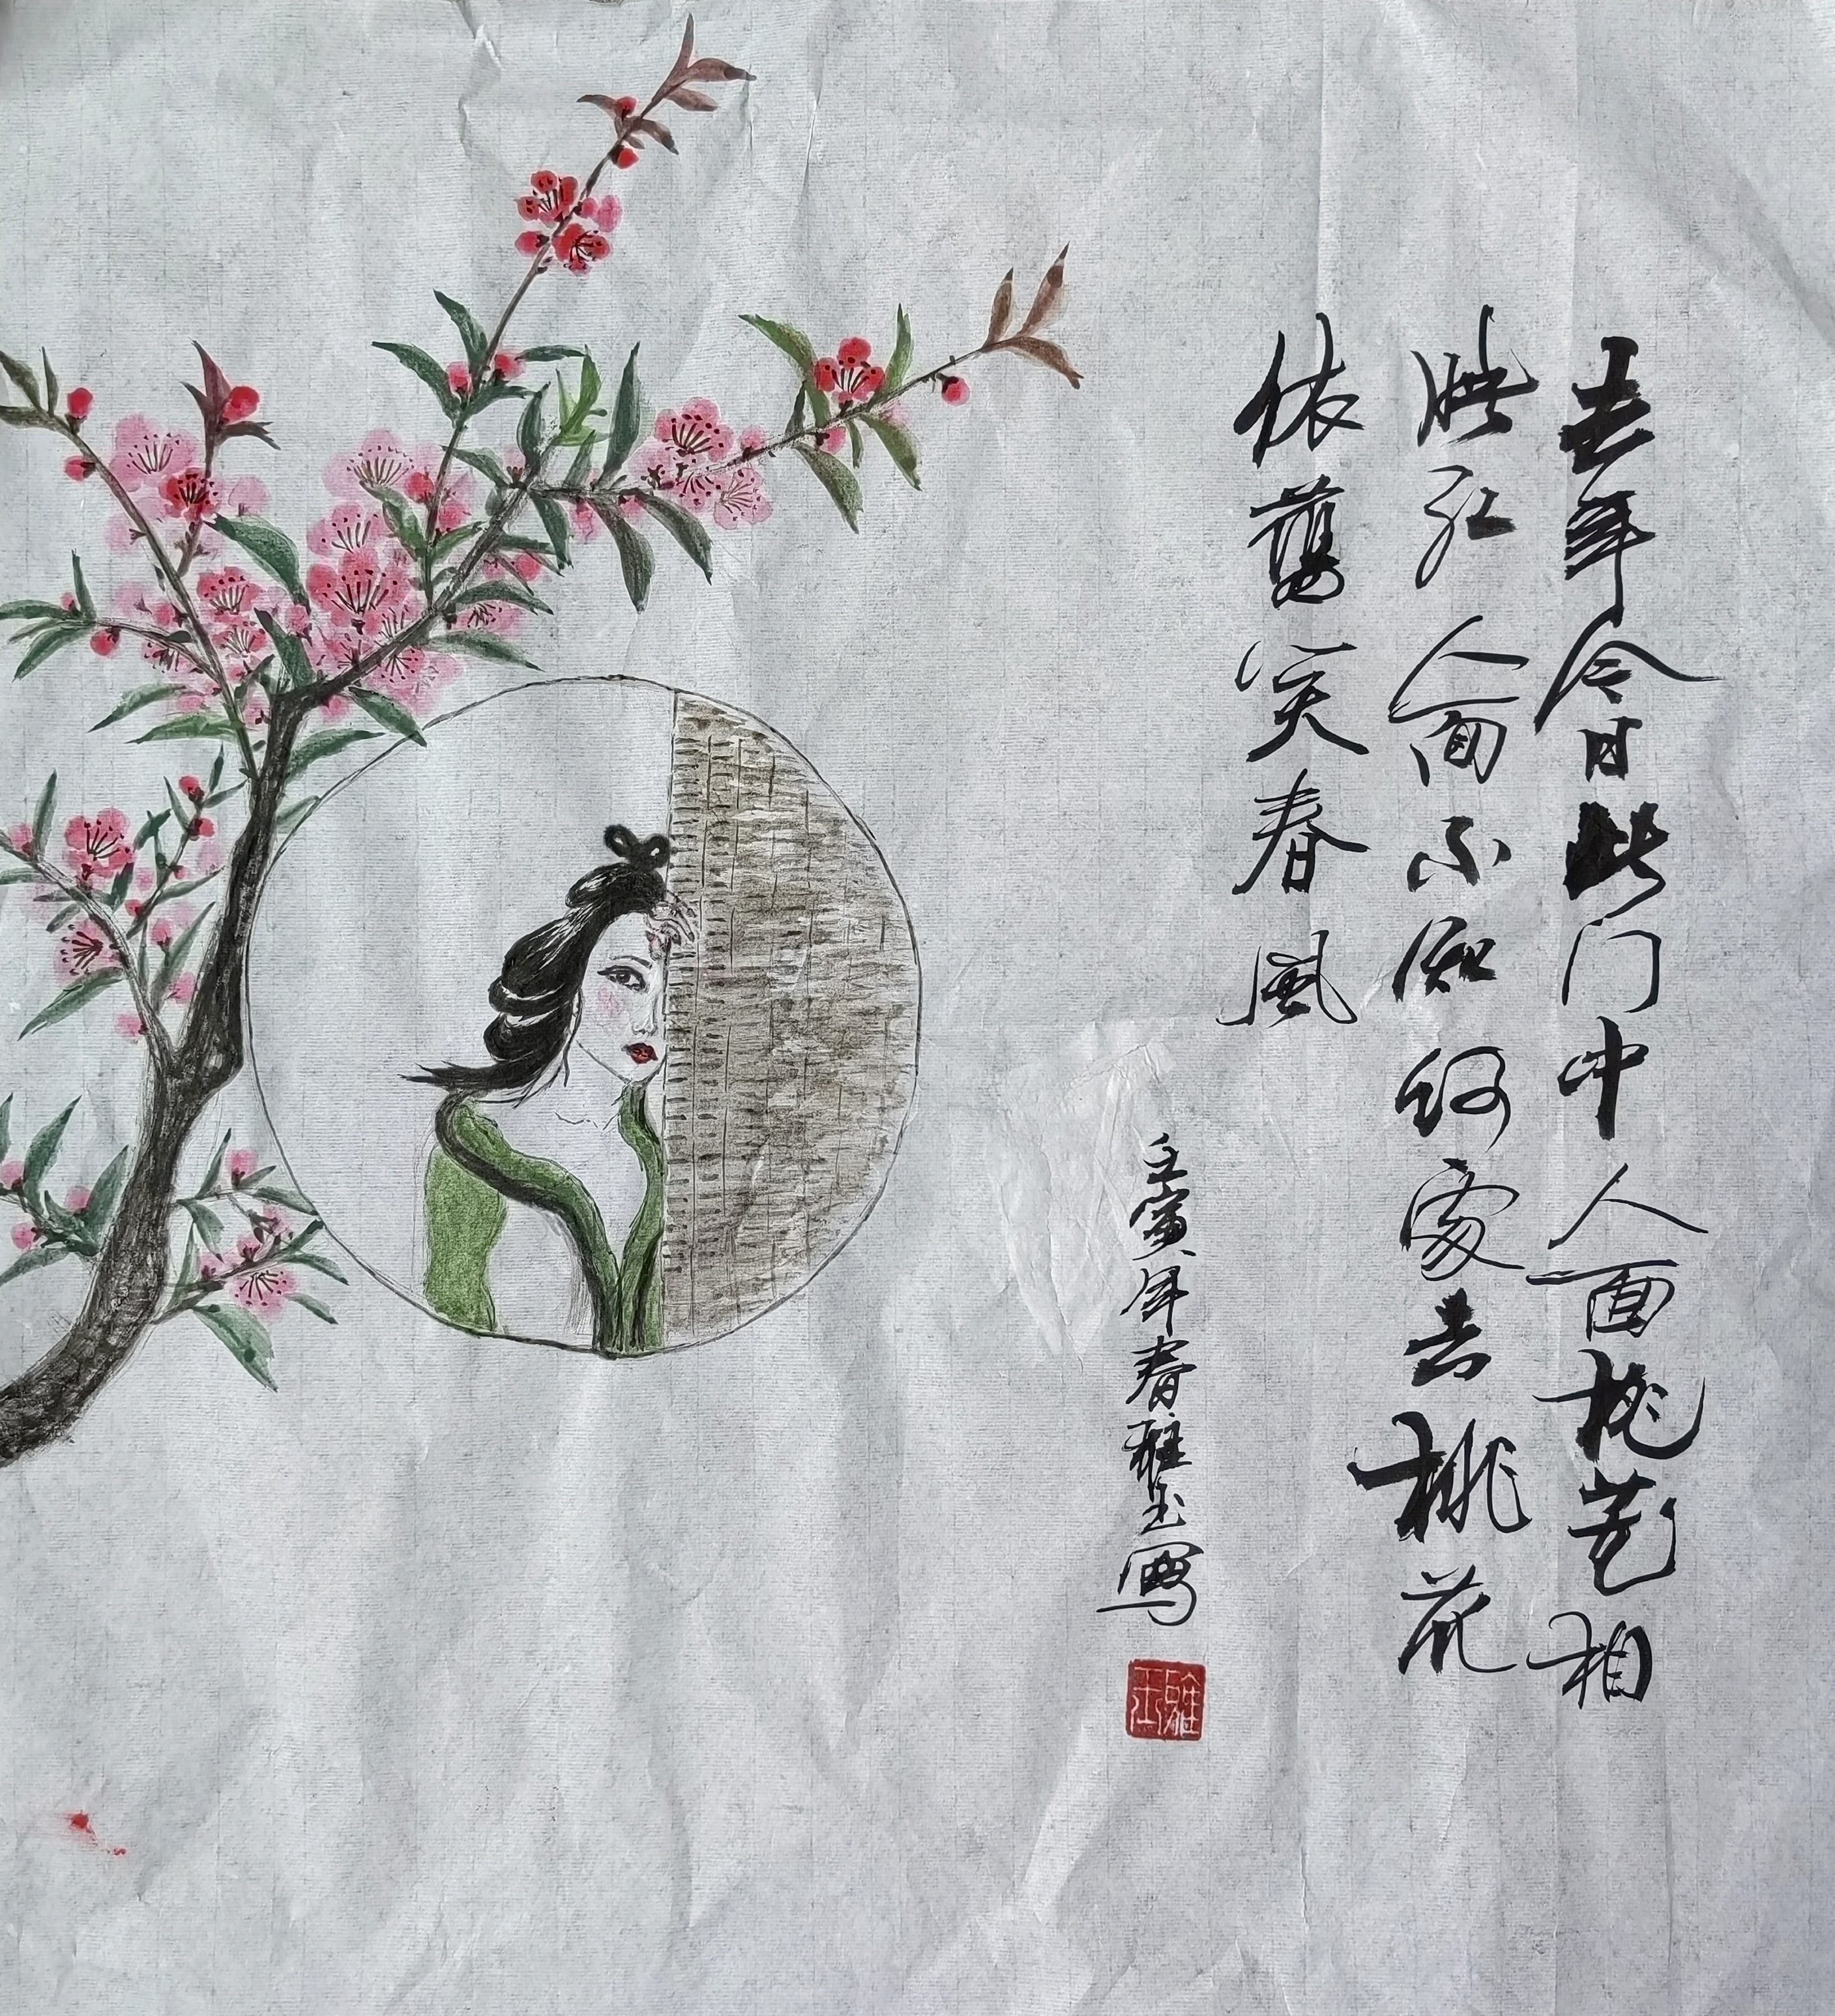 去年今日此门中人面桃花相
映红人面不知何處去桃花
依舊笑春風
壬寅年春雅玉写
雅玉